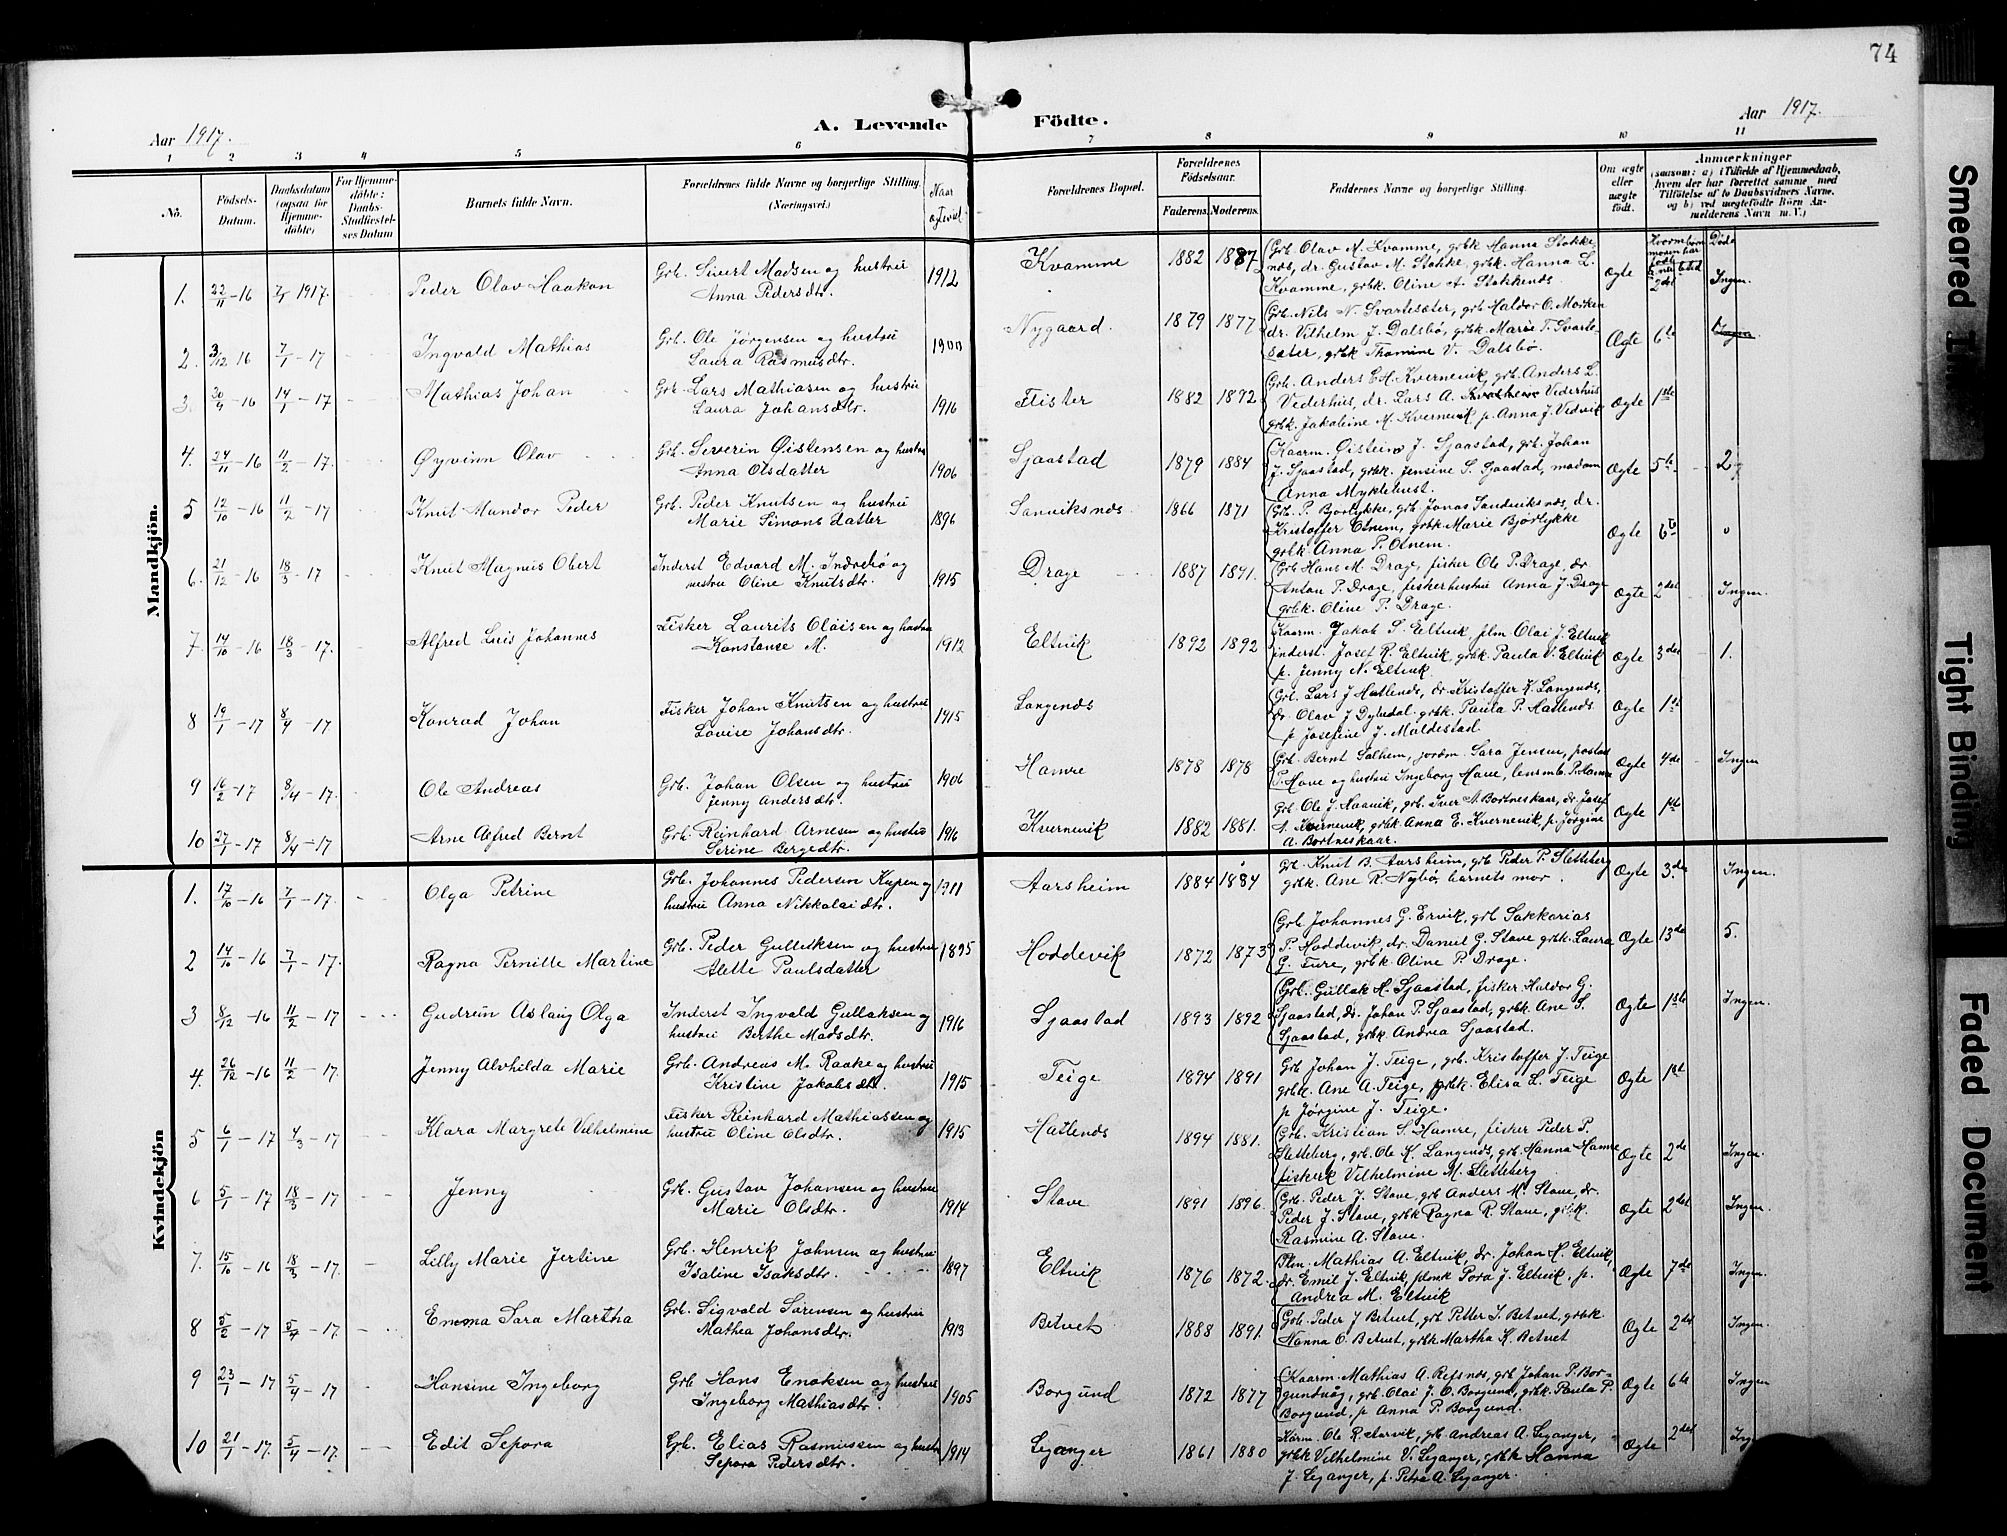 74
Aar 1917.
A. Levende Födte.
Aar 1917.
1 2 3 4 5 6 7 8 9 10 11
No.
Födsels-Datum.
Daabsdatum (ogsaa for Hjemme-döbte)
For Hjemme-döbte: Daabs-Stadfæstel-ses Datum
Barnets fulde Navn.
Forældrenes fulde Navne og borgerlige Stilling. (Næringsvei.)
Naar ægteviet
Forældrenes Bopæl.
Forældrenes Födselsaar.
Faderens. Moderens.
Faddernes Navne og borgerlige Stilling.
Om ægte eller uægte födt.
Anmærkninger
(saasom: a) i Tilfælde af Hjemmedaab, hvem der har forrettet samme med Tilföielse af to Daabsvidners Navne. og b) ved uægtefödte Börn An-melderens Navn m. V.)
Mandkjön.
1. 22/11-16 7/1 1917. Peder Olav Haakon
Grb. Sivert Madsen og hustru Anna Pedersdtr. 1912
Kvamme 1882 1887
Grb. Olav M. Kvamme, grbk Hanna Stokke-
nds, dr. Gustav M. Stokke, grbk. Hanna L.
Kvamme, grbk. Oline A. Stokkends.
Ogte 2det Døde Ingen.
2. 3/12 16 7/1-17 Ingvald Mathias
Grb. Ole Jørgensen og hustru Laura Rasmusdtr. 1900
Nygaard. 1879 1877
Grb. Nils N. Svartesæter, grb Haldor O. Morken
dr. Vilhelm J. Dalsbø, grbk. Marie T. Svarte-
sæter, grbk Thomine V. Dalsbø.
Ogte 6te
3. 30/9-16 14/1-17 Mathias Johan
Grb. Lars Mathiasen og hustru Laura Johansdtr. 1916
Flister 1882 1892
Grb. Anders E.H. Kvernevik, grb. Anders L.
Vederhus, dr. Lars A. Vederhus
grbk. Jakobine M. Kvernevik p. Anna J. Vedvik
Ogte 1ste
4. 24/11-16 11/2-17. Øyvinn Olav
Grb. Severin Øistensen og hustru Anna Olsdatter 1906
Sjaastad 1879 1884
Kaarm. Øistein J. Sjaastad, grb. Johan
J. Sjaastad, grbk. Jensine S. Sjaastad, madam
Anna Myklebust.
Ogte 5te 2
5 12/10-16 11/2-17 Knut Mundor Peder
Grb. Peder Knutsen og hustru Marie Simonsdatter 1896
Sanviksnds. 1866 1871
Grb. P. Bjorlykke, grb Jonas Sandviksnds, dr.
Kristoffer Otnem, grbk Marie Bjørlykke
grbk. Anna P. Otnem.
Ogte 6te 0
6. 21/12-16 18/3-17 Knut Magnus Obert
Inderst Edvard M. Indrebø og hustru Oline Knutsdtr. 1915
Drage 1887 1891.
Grb Hans M. Drage, fisker Ole P. Drage, dr
Anton P. Drage, fiskerhustru Anna J. Drage
grbk. Oline P. Drage.
Ogte 2det Ingen.
7. 14/10-16 18/3-17. Alfred Luis Johannes
Fisker Laurits Olaisen og hustru Konstanse M. 1912
Eltvik 1892 1892
Kaarm. Jakob S. Eltvik, plm Olai J. Eltvik
inderst Josef R. Eltvik, grbk. Paula V. Eltvik
p. Jenny N. Eltvik.
Ogte 3det 1.
8 19/1-17 8/4-17 Konrad Johan
Fisker Johan Knutsen og hustru Lovise Johansdtr. 1915
Langends
Grb. Lars J Hatlends, dr Kristoffer K. Langends,
dr. Olav J Dybedal. grbk. Paula P. Hatlends
p Josefine J. Maldestad.
Ogte 1ste
9 16/2-17 8/4-17. Ole Andreas
Grb. Johan Olsen og hustru Jenny Andersdtr. 1906
Hamre 1878 1878
Grb. Bernt Salhem, jordm. Sara Jensen,
P. Hove og hustru Ingeborg Hove, lensm.
Ogte 4de Ingen
10 27/1-17 8/4-17 Arne Alfred Bernt
Grb. Reinhard Arnesen og hustru Serine Bergedtr. 1916
Kvernevik 1882 1881.
Grb Ole J. Haavik, grb. Iver A. Bortneskaar, dr. Josef
A. Kvernevik, grbk Anna E. Kvernevik, p. Jørgine
A. Bortneskaar.
Ogte 1ste
Kvindekjön
1. 17/10-16 7/1-17. Olga Petrine
Grb. Johannes Pedersen Kupen og hustru Anna Nikkolaidtr. 1911
Aarsheim 1884 1884
Grb. Knut B. Aarsheim, grb Peder P. Sletteberg
grbk. Ane R. Nybø, barnets mor.
Ogte 3de Ingen.
2 14/10-16 7/1-17. Ragna Pernille Martine
Grb. Peder Gulleiksen og hustru Alette Paulsdatter 1895
Hoddevik 1872 1873
Grb Johannes G. Ervik, grb Sakkarias
P. Hoddevik, dr. Daniel G. Stave grbk. Laura
G. Fure, grbk. Oline P. Drage.
Ogte 13de 5.
3 8/12-16 11/2-17 Gudrun Aslaug Olga
Inderst Ingvald Gullaksen og hustru Berthe Madsdtr. 1916
Sjaastad 1893 1892
Grb. Gullak H. Sjaastad, fisker Haldor G.
Sjaastad, dr. Johan P. Sjaastad, grbk. Ane S.
Sjaastad, grbk. Andrea Sjaastad.
Ogte 1ste Ingen.
4. 26/12-16 11/2-17. Jenny Alvhilda Marie
Grb. Andreas M. Raake og hustru Kristine Jakobsdtr. 1915
Teige 1894 1891
Grb Johan J. Teige, grb. Kristoffer J. Teige
grbk. Ane A. Teige, grbk. Elisa L. Teige
p Jørgine J. Teige.
Ogte 1st
5 6/1-17 4/3-17 Klara Margrete Vilhelmine
Fisker Reinhard Mathiassen og hustru Oline Olsdtr. 1915
Hatlends 1894 1881.
Grb. Kristian S. Hamre, fisker Peder P.
Sletteberg, grb. Ole K. Langends, grbk. Hanna Hamre
fiskerk Vilhelmine M. Sletteberg
Ogte 2det Ingen.
6 5/1-17 18/3-17 Jenny
Grb. Gustav Johansen og hustru Marie Olsdtr. 1914
Stave 1891 1896.
Grb. Peder J. Stave, grb Anders M. Stave, dr.
Peder J. Stave, grbk Ragna R. Stave, grbk.
Rasmine A. Stave.
Ogte 2det Ingen.
7. 15/10-16 18/3-17. Lilly Marie Jertine
Grb. Henrik Johnsen og hustru Isaline Isaksdtr. 1897
Eltvik 1876 1872.
Plm. Mathias A. Eltvik, dr. Johan H. Eltvik,
dr. Emil J. Eltvik, plmk Pora J. Eltvik, p.
Andrea M. Eltvik
Ogte 7de Ingen.
8 5/2-17 5/4-17. Emma Sara Martha
Grb. Sigvald Sørensen og hustru Mathea Johansdtr. 1913
Betvet 1888 1891.
Grb. Peder J Betvet, grb Petter S. Betvet, grbk
Hanna O. Betvet, grbk Martha K. Betvet
Ogte 2det Ingen.
9 23/1-17 5/4-17 Hansine Ingeborg
Grb Hans Enoksen og hustru Ingeborg Mathiasdtr. 1905
Borgund 1872 1877
Kaarm. Mathias A. Refsnds, grb Johan P. Bor-
gundvåg, grb. Olai J. O. Borgund, grbk. Paula P.
Borgund, p Anna P. Borgund.
Ogte 6te Ingen
10 21/1-17. 5/4-17. Edit Sepora
Grb. Elias Rasmussen og hustru Sepora Pedersdtr. 1914
Leganger 1861 1880
Kårm. Ole R. Aarvik, grb Andreas A. Leganger,
grbk Vilhelmine V. Leganger, grbk Hanna
J. Leganger, p. Petra A. Leganger.
Ogte 2det
Smeared Ink
Tight Binding
Faded Document